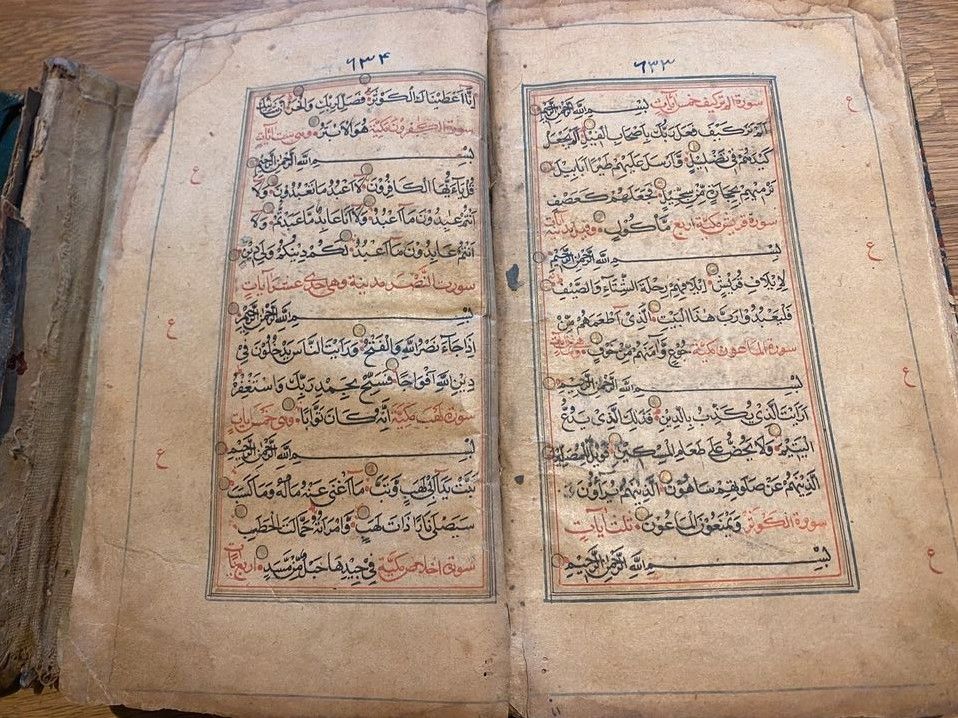 ٦٣٣
سورة الم تر كيف خمس آيات بِسْمِ اللهِ الرَّحْمٰنِ الرَّحِيْمِ
اَلَمْ تَرَ كَيْفَ فَعَلَ رَبُّكَ بِاَصْحَابِ الْفِيْلِ اَلَمْ يَجْعَلْ
كَيْدَهُمْ فِيْ تَضْلِيْلٍ وَّاَرْسَلَ عَلَيْهِمْ طَيْرًا اَبَابِيْلَ
تَرْمِيْهِمْ بِحِجَارَةٍ مِّنْ سِجِّيْلٍ فَجَعَلَهُمْ كَعَصْفٍ
سورة قريش مكية اربع مَّأْكُوْلٍ
بِسْمِ اللهِ الرَّحْمٰنِ الرَّحِيْمِ
لِاِيْلَافِ قُرَيْشٍ اِيْلَافِهِمْ رِحْلَةَ الشِّتَآءِ وَالصَّيْفِ
فَلْيَعْبُدُوْا رَبَّ هٰذَا الْبَيْتِ الَّذِيْ اَطْعَمَهُمْ مِّنْ
سورة الماعون مكية جُوْعٍ وَّآمَنَهُمْ مِّنْ خَوْفٍ
بِسْمِ اللهِ الرَّحْمٰنِ الرَّحِيْمِ
اَرَاَيْتَ الَّذِيْ يُكَذِّبُ بِالدِّيْنِ فَذٰلِكَ الَّذِيْ يَدُعُّ
الْيَتِيْمَ وَلَا يَحُضُّ عَلٰى طَعَامِ الْمِسْكِيْنِ فَوَيْلٌ لِّلْمُصَلِّيْنَ
الَّذِيْنَ هُمْ عَنْ صَلٰوتِهِمْ سَاهُوْنَ الَّذِيْنَ هُمْ يُرَآؤُنَ
سورة الكوثر وَيَمْنَعُوْنَ الْمَاعُوْنَ ثلث آيات
بِسْمِ اللهِ الرَّحْمٰنِ الرَّحِيْمِ
ع
ع
ع
ع
٦٣٤
اِنَّا اَعْطَيْنَاكَ الْكَوْثَرَ فَصَلِّ لِرَبِّكَ وَانْحَرْ اِنَّ شَانِئَكَ
سورة الكفرون مكية هُوَ الْاَبْتَرُ وهي ست آيات
بِسْمِ اللهِ الرَّحْمٰنِ الرَّحِيْمِ
قُلْ يَآ اَيُّهَا الْكَافِرُوْنَ لَا اَعْبُدُ مَا تَعْبُدُوْنَ وَلَا
اَنْتُمْ عَابِدُوْنَ مَآ اَعْبُدُ وَلَا اَنَا عَابِدٌ مَّا عَبَدْتُّمْ وَلَا
اَنْتُمْ عَابِدُوْنَ مَآ اَعْبُدُ لَكُمْ دِيْنُكُمْ وَلِيَ دِيْنِ
سورت النصر مدينة وهي آيات
بِسْمِ اللهِ الرَّحْمٰنِ الرَّحِيْمِ
اِذَا جَآءَ نَصْرُ اللهِ وَالْفَتْحُ وَرَاَيْتَ النَّاسَ يَدْخُلُوْنَ فِيْ
دِيْنِ اللهِ اَفْوَاجًا فَسَبِّحْ بِحَمْدِ رَبِّكَ وَاسْتَغْفِرْهُ
سورة لهب مكية اِنَّهُ كَانَ تَوَّابًا وهي خمس آيات
بِسْمِ اللهِ الرَّحْمٰنِ الرَّحِيْمِ
تَبَّتْ يَدَآ اَبِيْ لَهَبٍ وَّتَبَّ مَآ اَغْنٰى عَنْهُ مَالُهُ وَمَا كَسَبَ
سَيَصْلٰى نَارًا ذَاتَ لَهَبٍ وَّامْرَاَتُهُ حَمَّالَةَ الْحَطَبِ
سورة اخلاص مكية فِيْ جِيْدِهَا حَبْلٌ مِّنْ مَّسَدٍ اربع آيات
ع
ع
ع